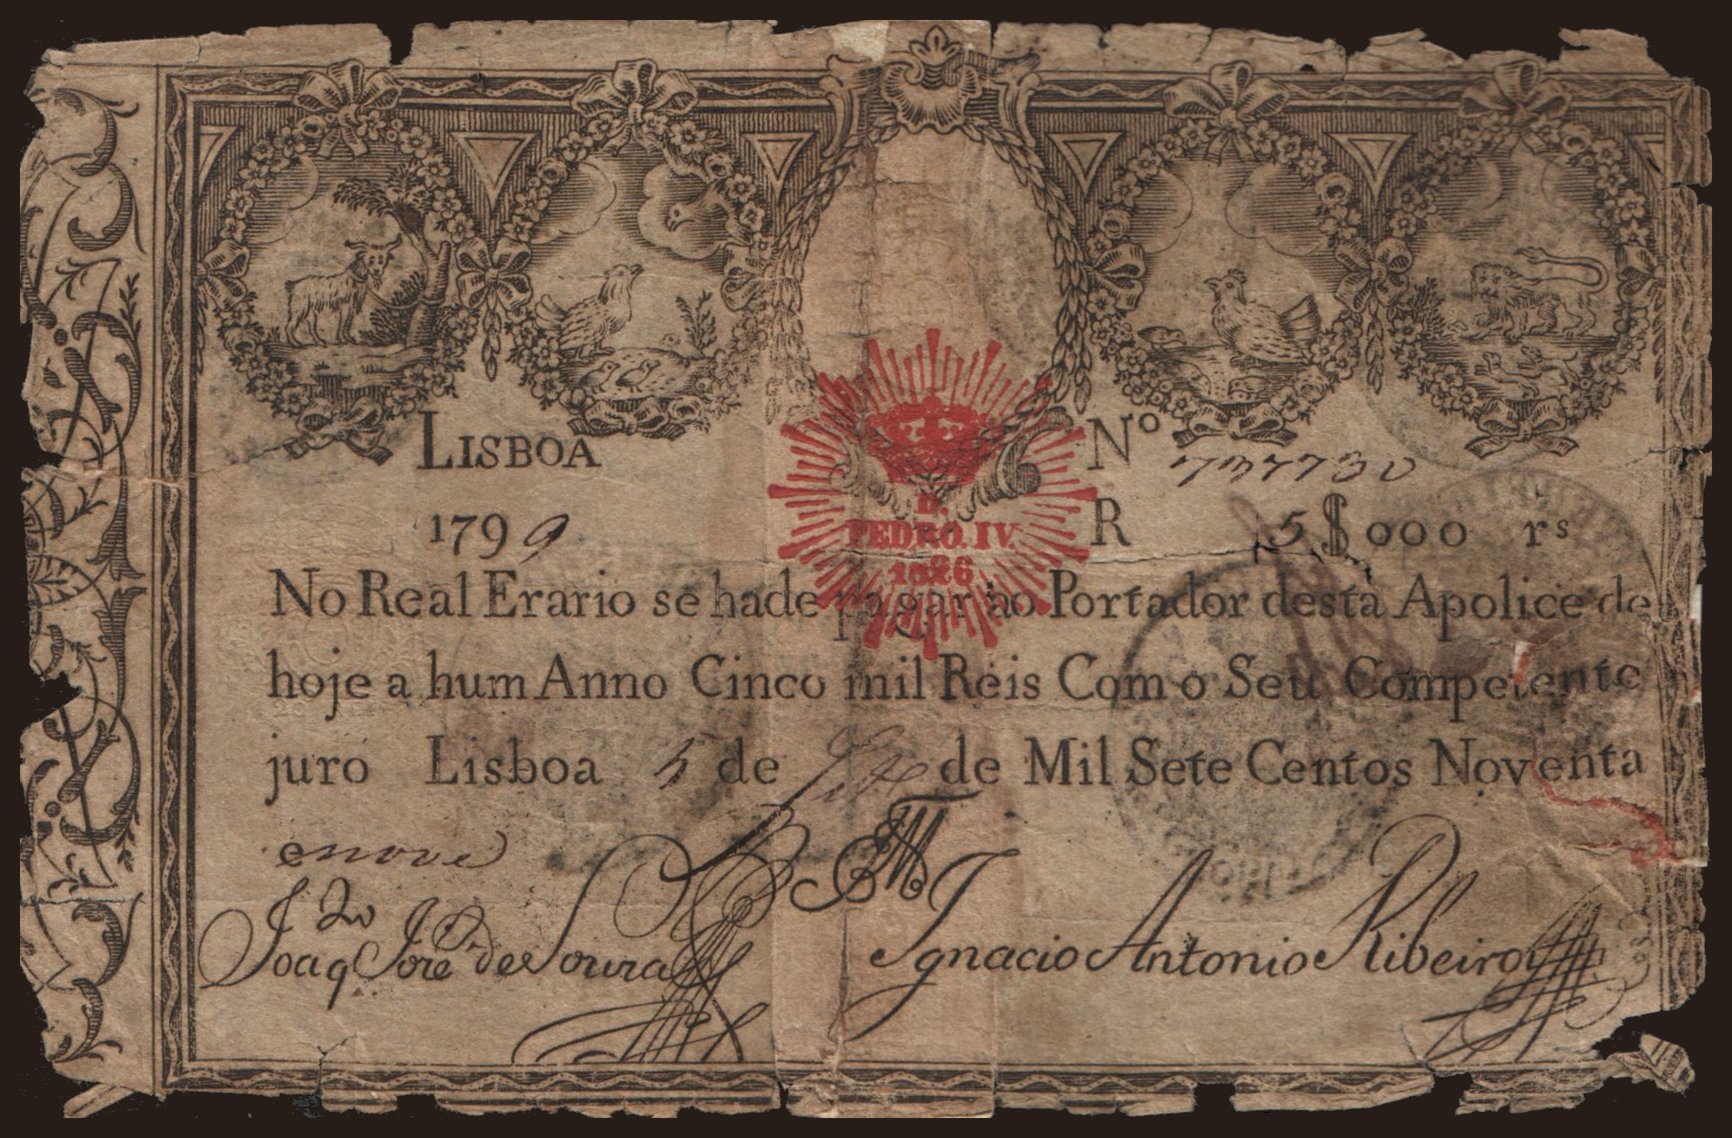 LISBOA
Nº 737730
1799
R 5$000 rs
D.
PEDRO. IV.
1826
No Real Erario se hade pagar ao Portador desta Apolice de
hoje a hum Anno Cinco mil Réis Com o Seu Competente
juro Lisboa 5 de de Mil Sete Centos Noventa
enove
Joaq José de Souza
Ignacio Antonio Ribeiro